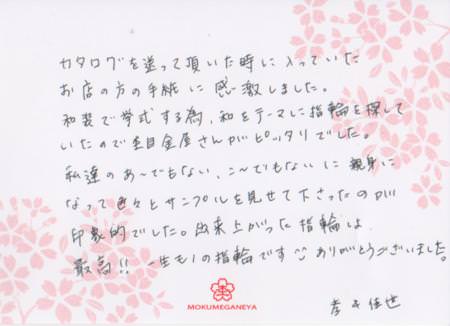 カタログを送って頂いた時に入っていた
お店の方の手紙に感激しました。
和装で挙式する為、和をテーマに指輪を探して
いたので杢目金屋さんがピッタリでした。
私達のあ〜でもない、こ〜でもないに親身に
なって色々とサンプルを見せて下さったのが
印象的でした。出来上がった指輪は
最高!! 一生モノの指輪です ありがとうございました。
MOKUMEGANEYA